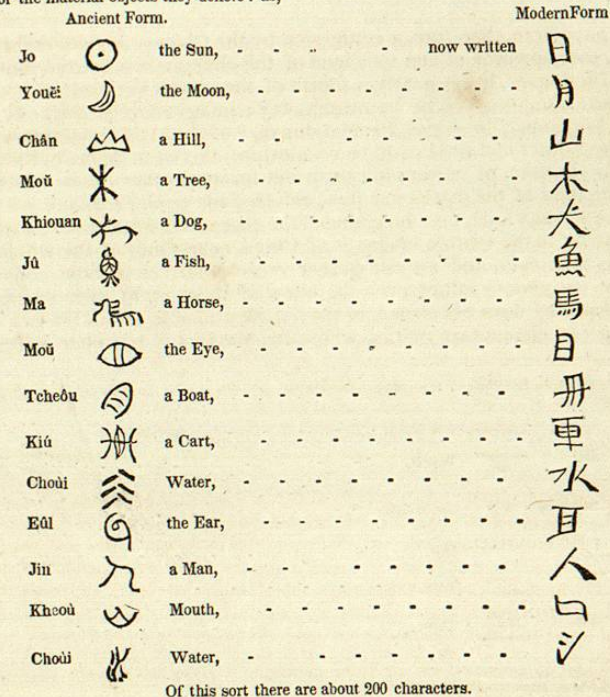 of the material objects they denote
Ancient Form. ModernForm
Jo the Sun, - - - - now written 日
Youĕi the Moon, - - - - - - - - 月
Chân a Hill, - - - - - - - - 山
Moŭ a Tree, - - - - - - - - 木
Khiouan a Dog, - - - - - - - - 犬
Jû a Fish, - - - - - - - - 魚
Ma a Horse, - - - - - - - - 馬
Moŭ the Eye, - - - - - - - - 目
Tcheôu a Boat, - - - - - - - - 舟
Kiú a Cart, - - - - - - - - 車
Choùi Water, - - - - - - - - 水
Eûl the Ear, - - - - - - - - 耳
Jin a Man, - - - - - - - 人
Kheoù Mouth, - - - - - - - - 口
Choùi Water, - - - - - - - 氵
Of this sort there are about 200 characters.